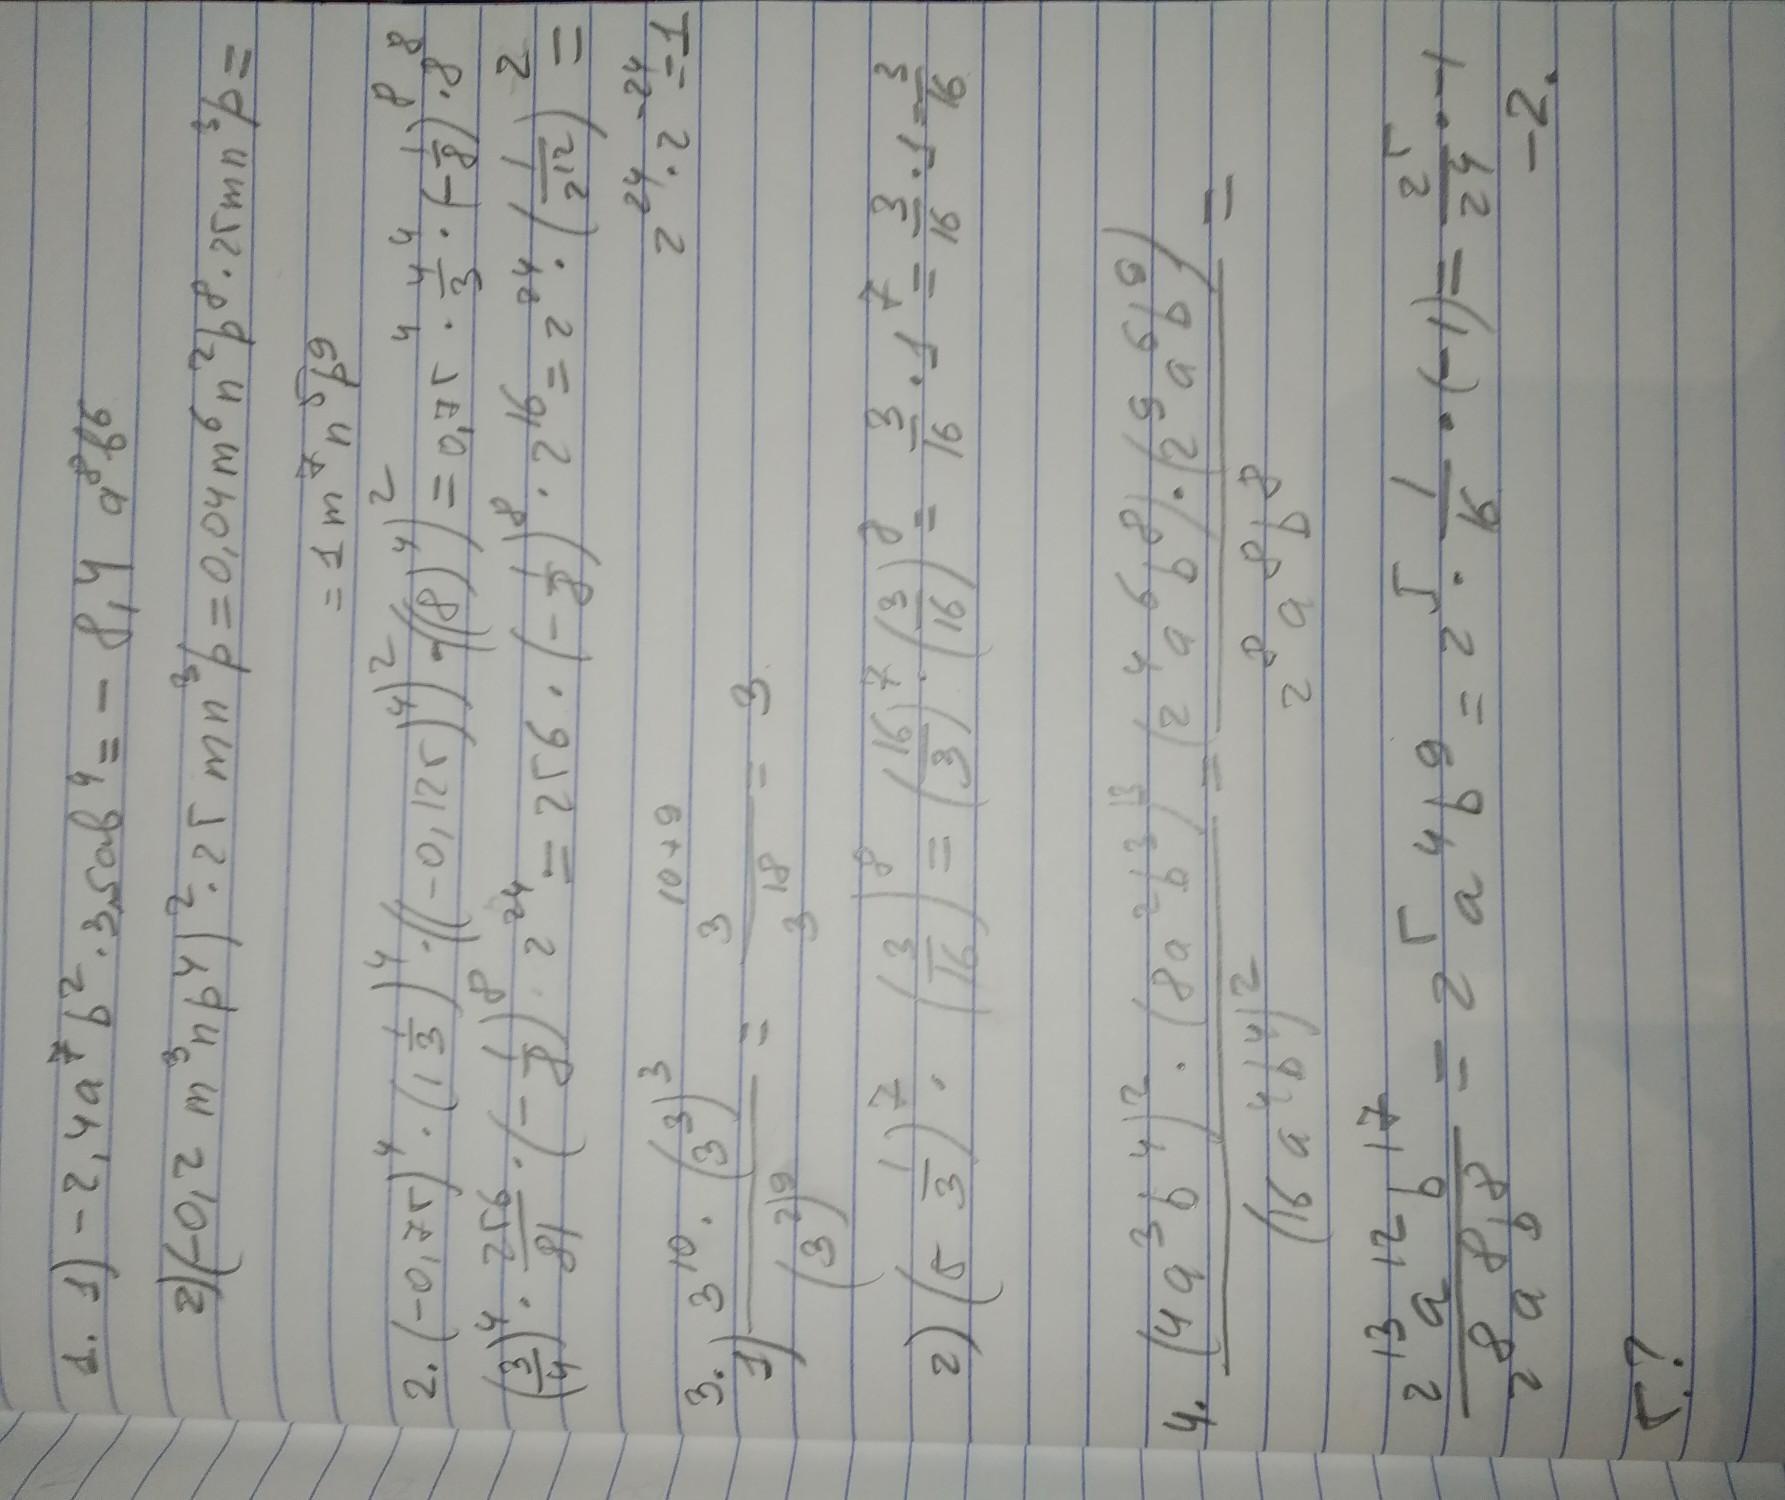 1. 1) -2,4a⁷b² · 3,5ab⁴ = -8,4 a⁸b⁶
2) (-0,2 m³np⁴)² · 25 mn³p = 0,04m⁶n²p⁸ · 25mn³p =
= 1m⁷n⁵p⁹
2. (-0,75)⁴ · (1 1/3)⁴ · ((-0,125)⁴)² · ((8)⁴)² = 0,75⁴ · 4/3⁴ ⁴ · (-1/8)⁸ · 8⁸
(3/4)⁴ · 256/81 · (-1/8)⁸ · 2²⁴ = 256 · (-1/8)⁸ · 2¹⁶ = 2²⁴ · (1/2¹²)² =
2²⁴ · 2⁻²⁴ = 1
3. 1) 3¹⁰ · (3³)³ / (3²)⁹ = 3¹⁰⁺⁹ / 3¹⁸ = 3
2) (5 1/3)⁷ · (3/16)⁸ = (16/3)⁷ · (3/16)⁸ = 3/16 · 1⁷ = 3/16 · 1 = 3/16
4. (4a³b⁴)² · (8a²b³)³ / (16a⁴b⁴)² = (2⁴a⁶b⁸) · (2⁹a⁶b⁹) / 2⁸a⁸b⁸ =
2¹³a¹²b¹⁷ / 2⁸a⁸b⁸ = 2⁵a⁴b⁹ = 2⁵ · 1/16 · (-1) = 2⁵/2⁴ · -1
-2.
5.?